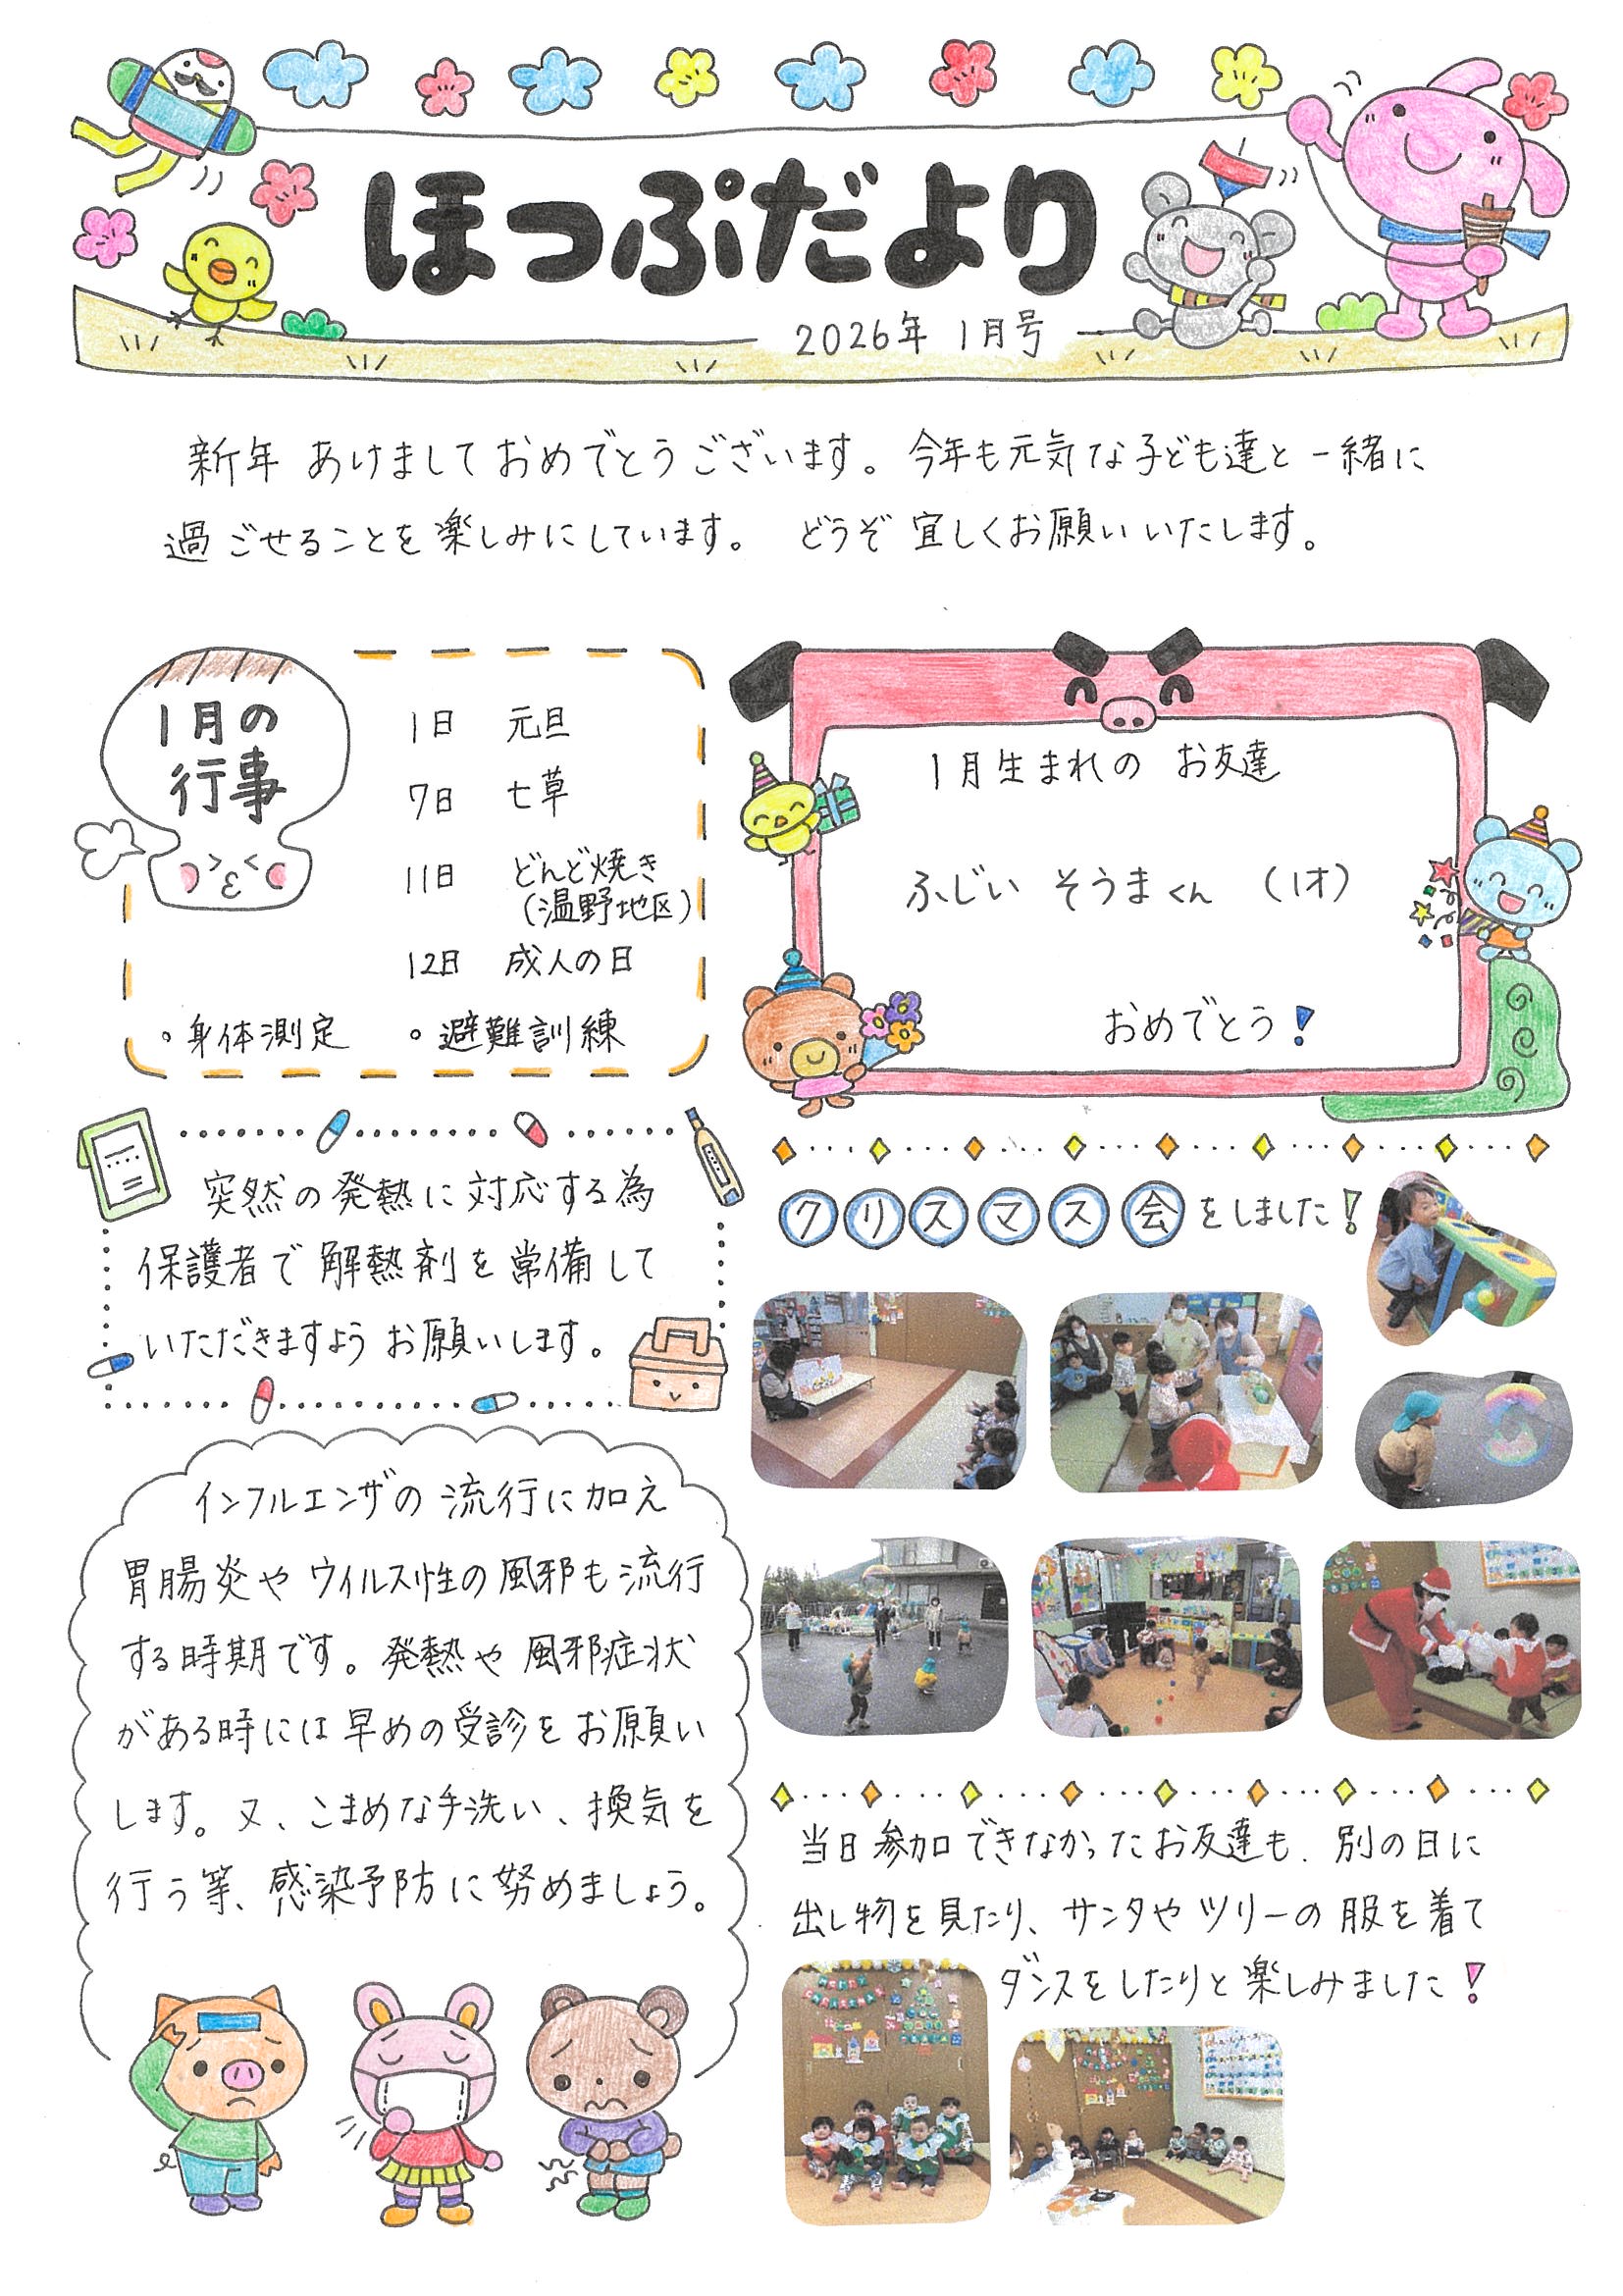 ほっぷだより
2026年 1月号
新年 あけまして おめでとうございます。今年も元気な子ども達と一緒に
過ごせることを楽しみにしています。 どうぞ 宜しくお願いいたします。
1月の
行事
1日 元旦
7日 七草
11日 どんど焼き
(温野地区)
12日 成人の日
。身体測定 。避難訓練
1月生まれの お友達
ふじい そうまくん (1才)
おめでとう!
突然の発熱に対応する為
保護者で解熱剤を常備して
いただきますよう お願いします。
インフルエンザの流行に加え
胃腸炎や ウイルス性の風邪も流行
する時期です。発熱や風邪症状
がある時には早めの受診をお願い
します。又、こまめな手洗い、換気を
行う等、感染予防に努めましょう。
クリスマス会をしました!
当日参加できなかったお友達も、別の日に
出し物を見たり、サンタやツリーの服を着て
ダンスをしたりと楽しみました!